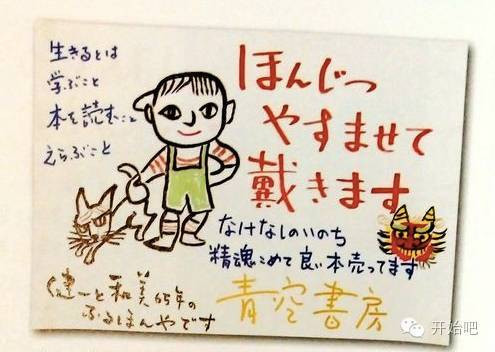 生きるとは
学ぶこと
本を読むこと
えらぶこと
ほんじつ
やすませて
戴きます
なけなしのいのち
精魂こめて良い本売ってます
健一と和美65年の
ふるほんやです
青空書房
开始吧